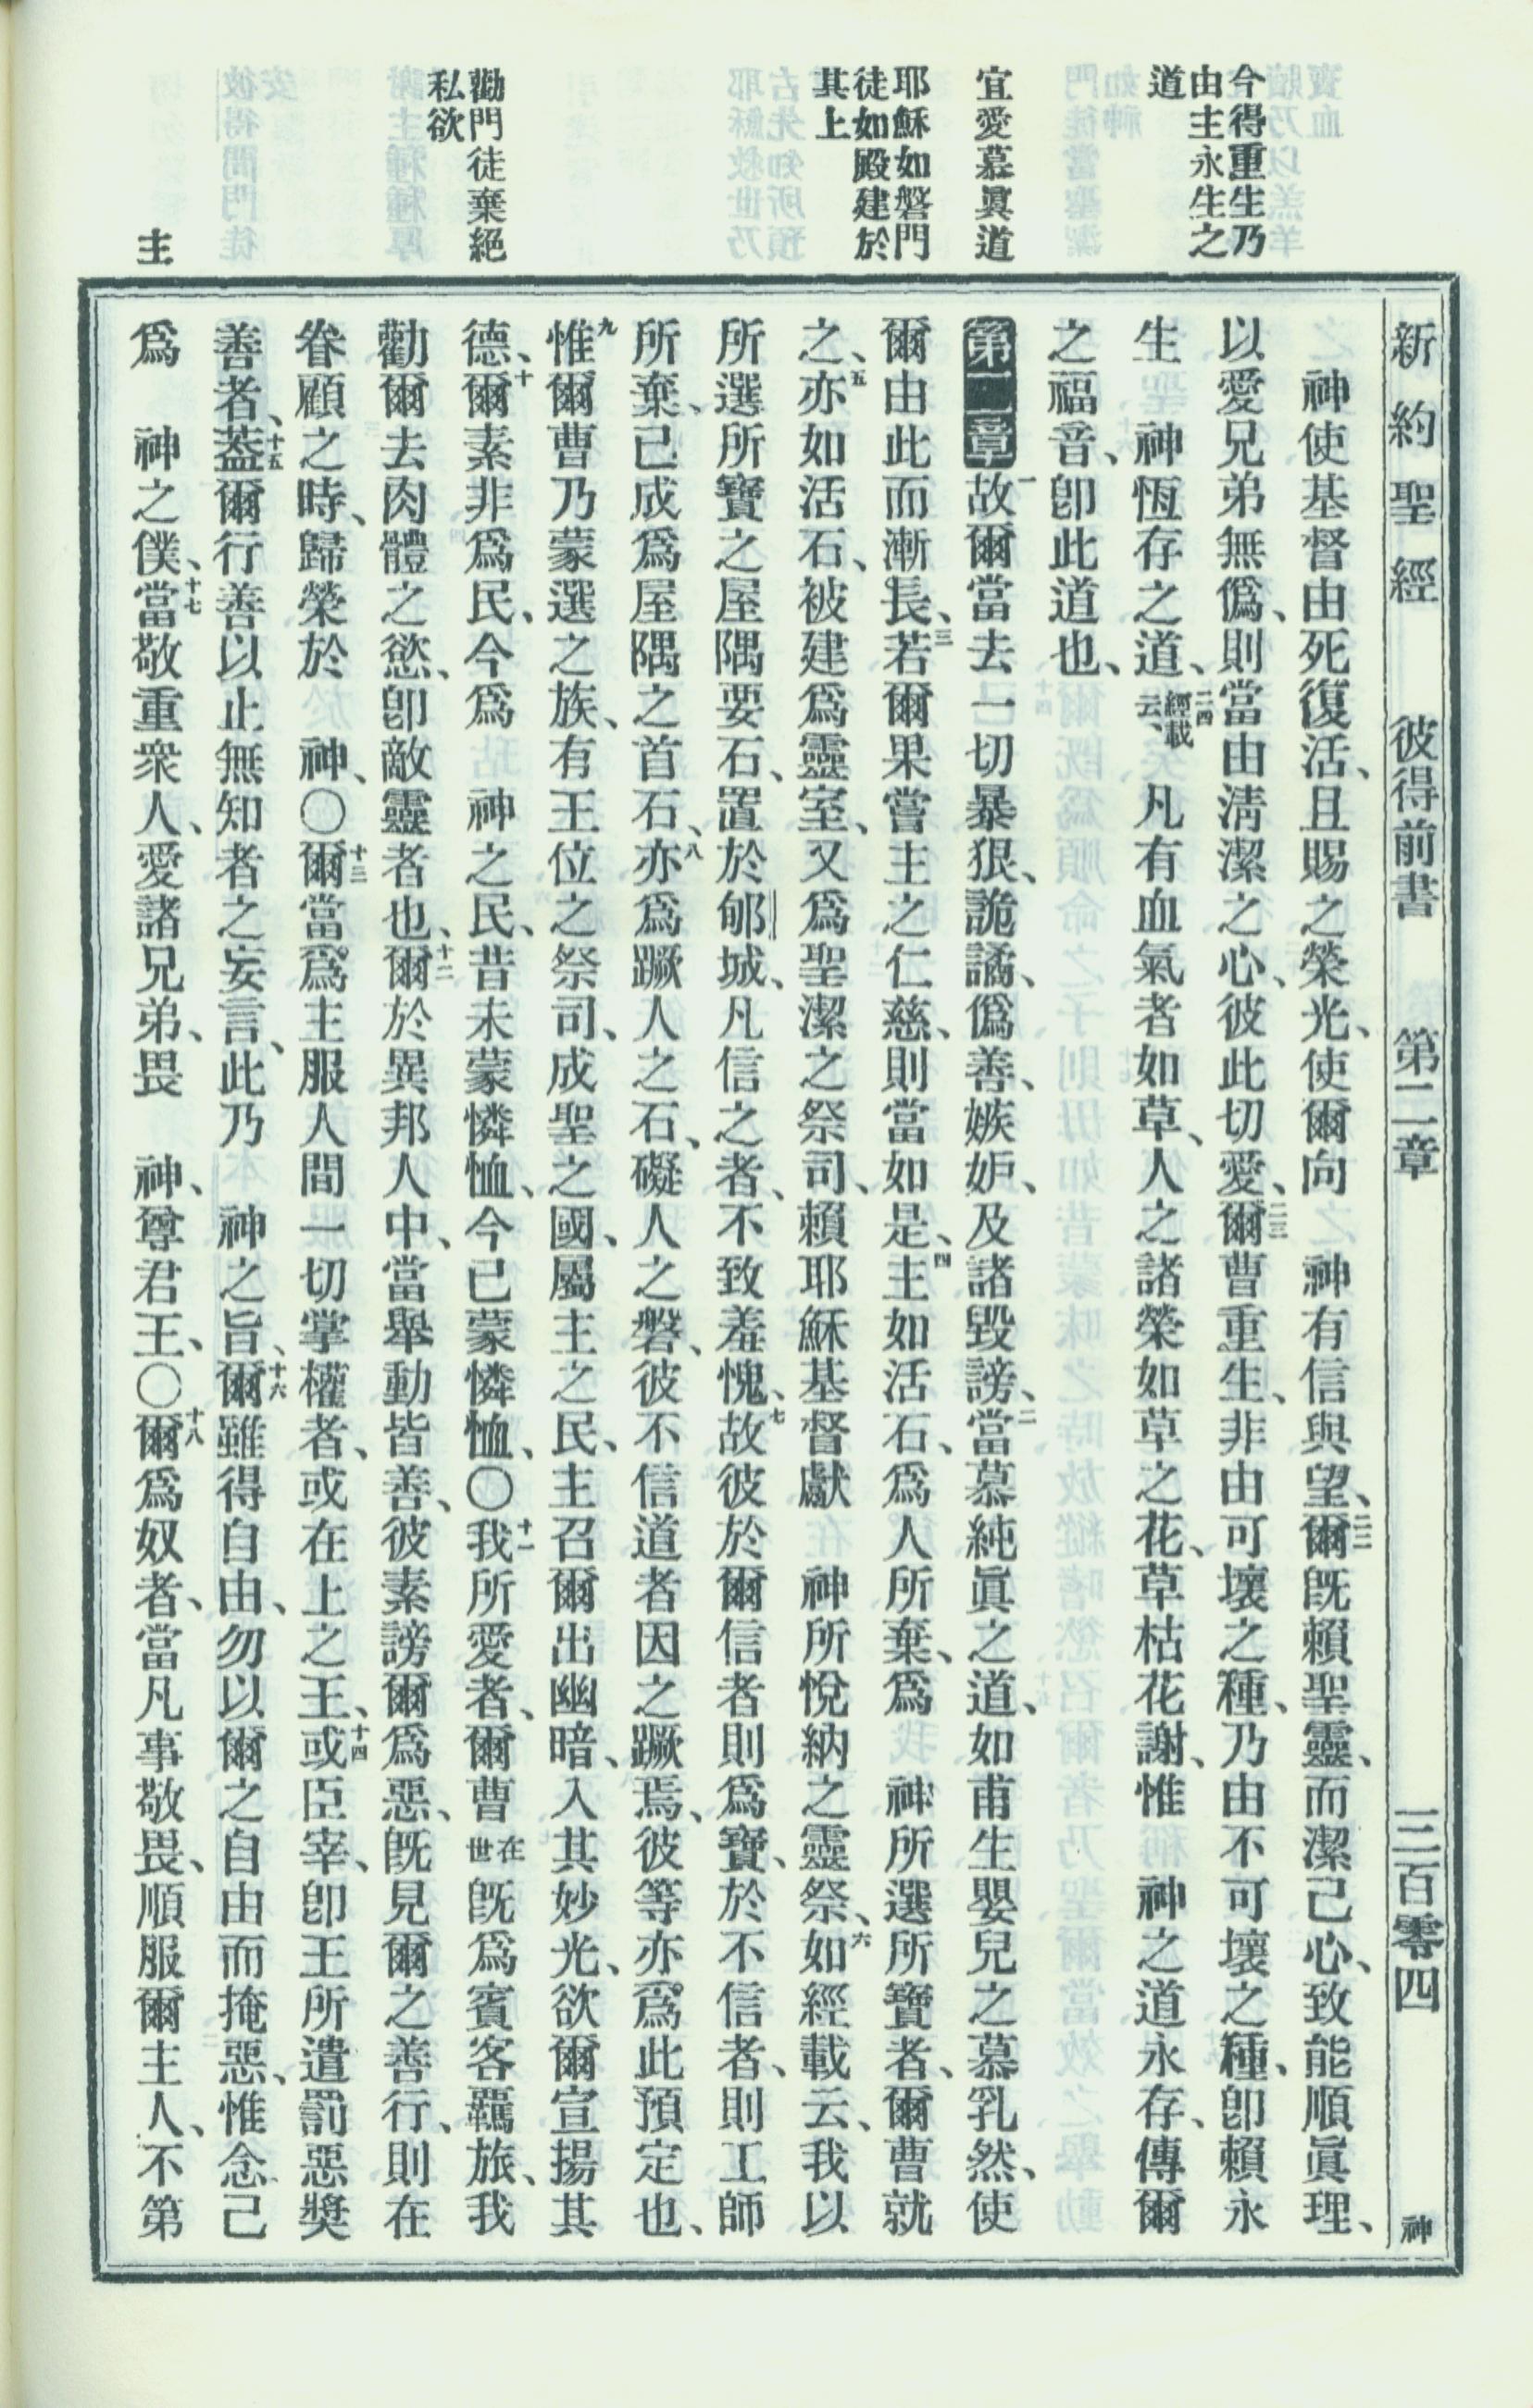 新約聖經　彼得前書　第二章　三百零四　神
今得重生乃
由主永生之
道
宜愛慕眞道
耶穌如磐門
徒如殿建於
其上
勸門徒棄絕
私欲
主
神使基督由死復活、且賜之榮光、使爾向　神有信與望、二二爾既賴聖靈、而潔己心、致能順眞理、
以愛兄弟無僞、則當由清潔之心、彼此切愛、二三爾曹重生、非由可壞之種、乃由不可壞之種、卽賴永
生　神恆存之道、二四經載云、凡有血氣者如草、人之諸榮如草之花、草枯花謝、惟　神之道永存、傳爾
之福音、卽此道也、
第二章一故爾當去一切暴狠、詭譎、僞善、嫉妒、及諸毀謗、二當慕純眞之道、如甫生嬰兒之慕乳然、使
爾由此而漸長、三若爾果嘗主之仁慈、則當如是、四主如活石、爲人所棄、爲　神所選所寶者、爾曹就
之、五亦如活石、被建爲靈室、又爲聖潔之祭司、賴耶穌基督獻　神所悅納之靈祭、六如經載云、我以
所選所寶之屋隅要石、置於郇城、凡信之者、不致羞愧、七故彼於爾信者則爲寶、於不信者、則工師
所棄、已成爲屋隅之首石、八亦爲蹶人之石、礙人之磐、彼不信道者因之蹶焉、彼等亦爲此預定也、
九惟爾曹乃蒙選之族、有王位之祭司、成聖之國、屬主之民、主召爾出幽暗、入其妙光、欲爾宣揚其
德、十爾素非爲民、今爲　神之民、昔未蒙憐恤、今已蒙憐恤、〇十一我所愛者、爾曹在世既爲賓客羈旅、我
勸爾去肉體之慾、卽敵靈者也、十二爾於異邦人中、當舉動皆善、彼素謗爾爲惡、既見爾之善行、則在
眷顧之時、歸榮於　神、〇十三爾當爲主服人間一切掌權者、或在上之王、十四或臣宰、卽王所遣罰惡獎
善者、十五蓋爾行善以止無知者之妄言、此乃　神之旨、十六爾雖得自由、勿以爾之自由而掩惡、惟念己
爲　神之僕、十七當敬重衆人、愛諸兄弟、畏　神、尊君王、〇十八爾爲奴者、當凡事敬畏、順服爾主人、不第